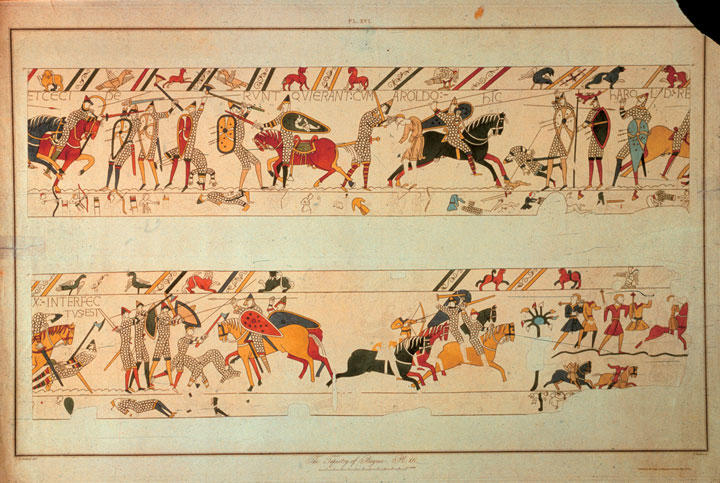 PL. XVI.
ET CECI DE RVNT QVI ERANT: CVM HAROLDO:- HIC HAROLD: RE
X:- INTERFEC
TVS: EST
The Tapestry of Bayeux. Pl. 16.